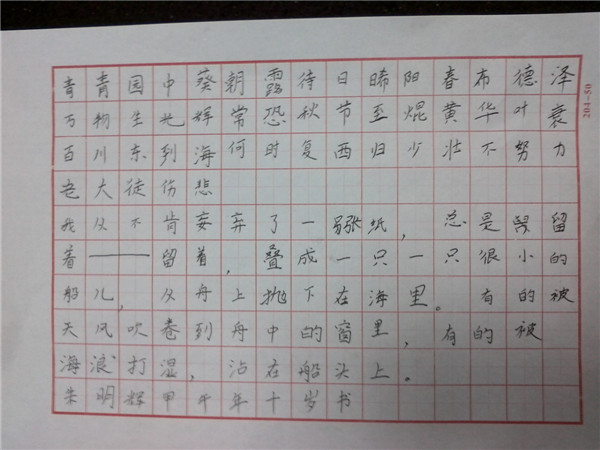 青青园中葵朝露待日晞阳春布德泽
万物生光辉常恐秋节至焜黄华叶衰
百川东到海何时复西归少壮不努力
老大徒伤悲
我从不肯妄弃了一张纸，总是留
着——留着，叠成一只一只很小的
船儿，从舟上抛下在海里。有的被
天风吹卷到舟中的窗里，有的被
海浪打湿，沾在船头上。
朱明辉甲午年十岁书
204-50